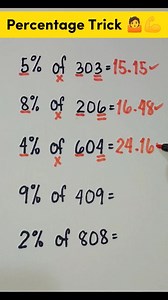 Percentage Trick 🤷💪
5% of 303 = 15.15✓
x
8% of 206 = 16.48✓
x
4% of 604 = 24.16
x
9% of 409 =
2% of 808 =